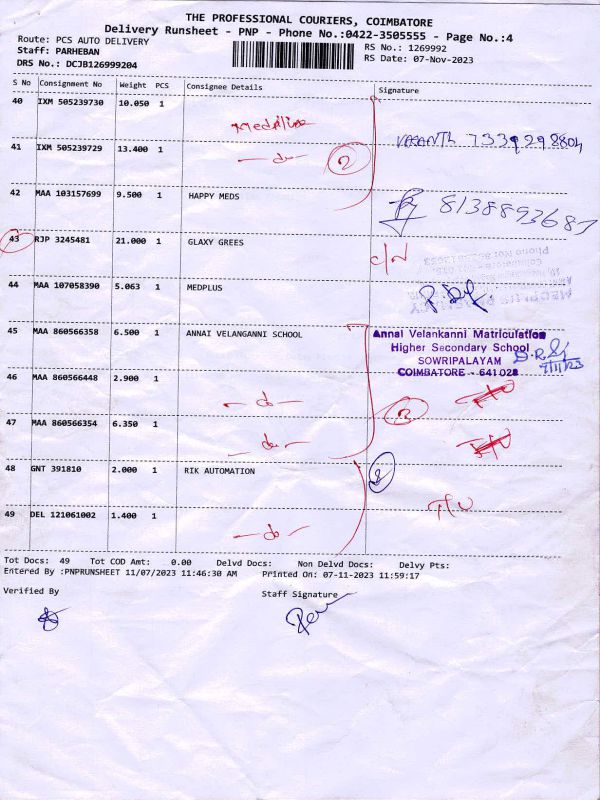 THE PROFESSIONAL COURIERS, COIMBATORE
Delivery Runsheet - PNP - Phone No.:0422-3505555 - Page No.:4
Route: PCS AUTO DELIVERY
RS No.: 1269992
Staff: PARHEBAN
RS Date: 07-Nov-2023
DRS No.: DCJB126999204
S No Consignment No Weight PCS Consignee Details Signature
40 IXM 505239730 10.050 1 Medpline
41 IXM 505239729 13.400 1 — do — 2 VASANTH 7339298804
42 MAA 103157699 9.500 1 HAPPY MEDS 8138893687
43 RJP 3245481 21.000 1 GLAXY GREES C/N
44 MAA 107058390 5.063 1 MEDPLUS
45 MAA 860566358 6.500 1 ANNAI VELANGANNI SCHOOL
Annai Velankanni Matriculation
Higher Secondary School
SOWRIPALAYAM
COIMBATORE - 641 028
7/11/23
46 MAA 860566448 2.900 1 — do —
3
47 MAA 860566354 6.350 1 — do —
48 GNT 391810 2.000 1 RIK AUTOMATION 2
49 DEL 121061002 1.400 1 — do —
Tot Docs: 49 Tot COD Amt: 0.00 Delvd Docs: Non Delvd Docs: Delvy Pts:
Entered By :PNPRUNSHEET 11/07/2023 11:46:30 AM Printed On: 07-11-2023 11:59:17
Verified By Staff Signature